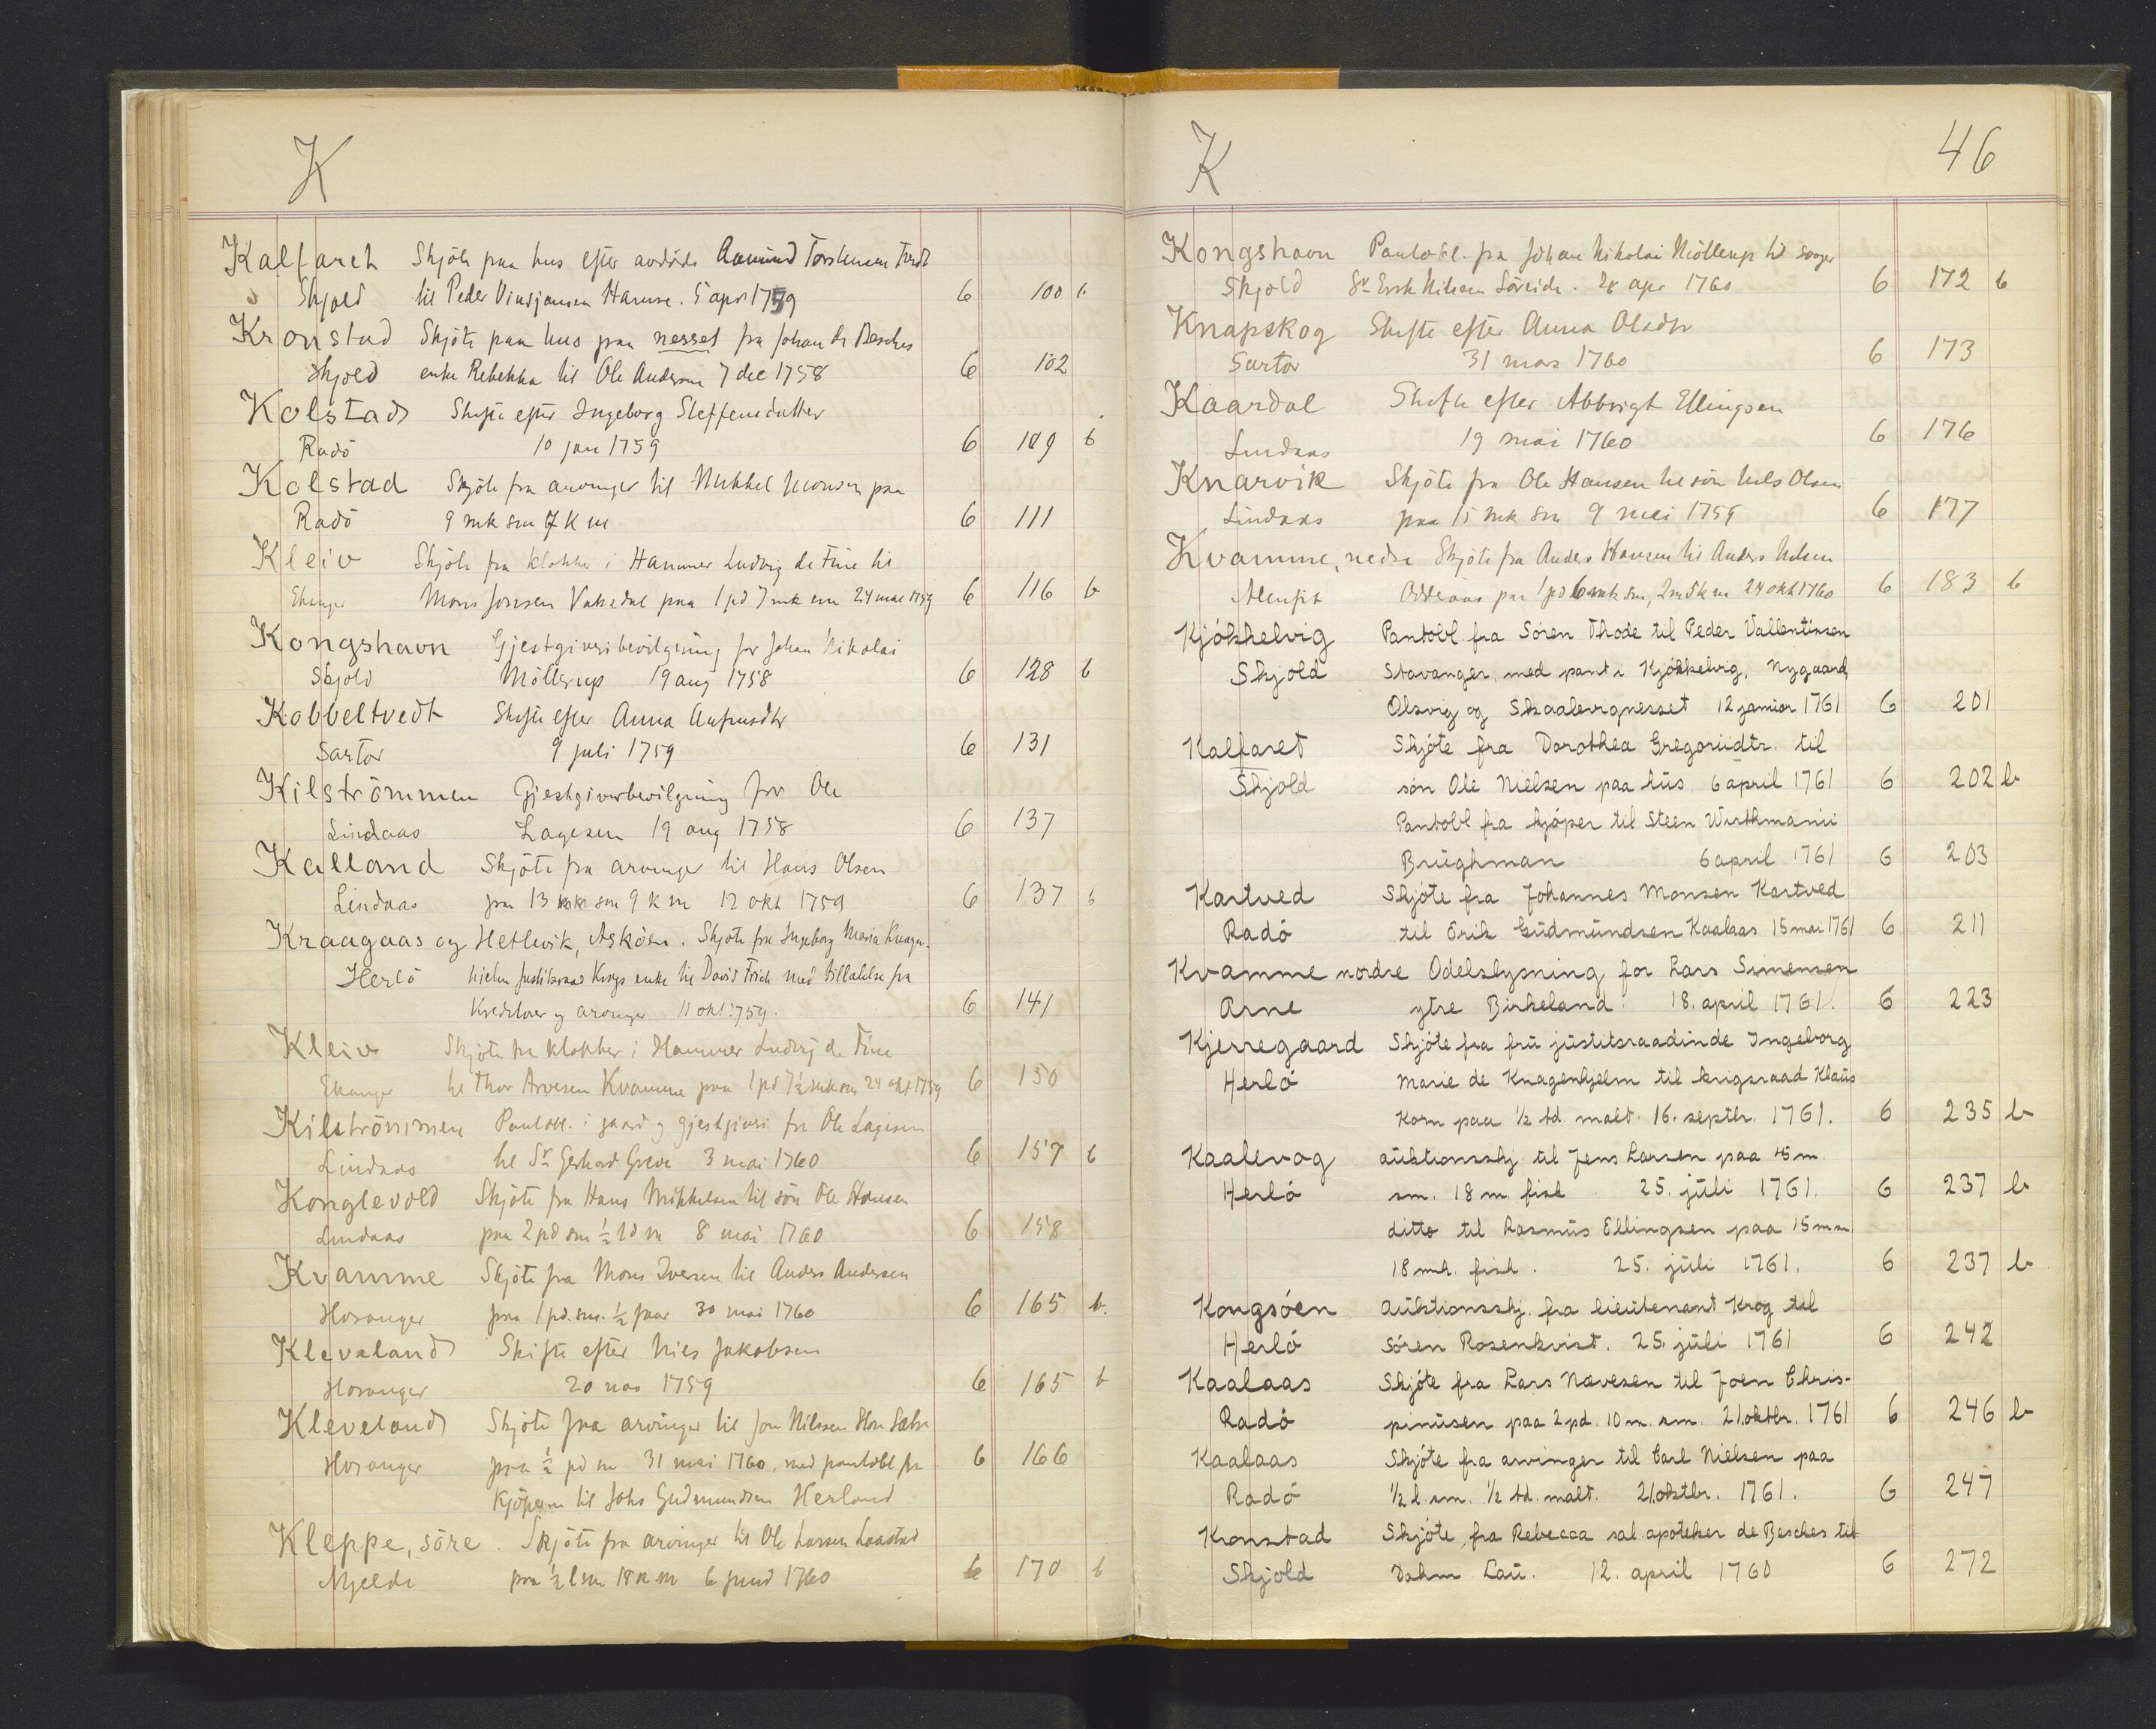 K
Kalfaret Skjöte paa hus efter avdöde Aamund Torstensen
Skjold til Peder Vindjansen Hamre. 5 apr 1759 6 100 b
Kronstad Skjöte paa hus paa nesset fra Johan de Besches
Skjold enke Rebekka til Ole Andersen 7 dec 1758 6 102
Kolstad Skifte efter Ingeborg Steffensdatter
Radö 10 jan 1759 6 109 b
Kolstad Skjöte fra arvinger til Mikkel Monsen paa
Radö 9 mk sm 7 K m 6 111
Kleiv Skjöte fra klokker i Hammer Ludvig de Fine til
Ekanger Mons Jonsen Vaksdal paa 1 pd 7 mk sm 24 mai 1759 6 116 b
Kongshavn Gjestgiveribevilgning for Johan Nikolai
Skjold Möllerup 19 aug 1758 6 128 b
Kobbeltvedt Skifte efter Anna Anfinsdtr
Sartor 9 juli 1759 6 131
Kilströmmen Gjestgiverbevilgning for Ole
Lindaas Lagesen 19 aug 1758 6 137
Kalland Skjöte fra arvinger til Hans Olsen
Lindaas paa 13 mk sm 9 k m 12 okt 1759 6 137 b
Kraagaas og Hetlevik, Asköen. Skjöte fra Ingeborg Maria Knagen-
Herlö hjelm justitsraad Krogs enke til David Frich med tilladelse fra
Kreditorer og arvinger 11 okt 1759. 6 141
Kleiv Skjöte fra klokker i Hammer Ludvig de Fine
Ekanger til Thor Arvesen Kvamme paa 1 pd 7½ mk sm 24 okt 1759 6 150
Kilströmmen Pantobl. i gaard og gjestgiveri fra Ole Lagesen
Lindaas til Sr Gerhard Greve 3 mai 1760 6 157 b
Konglevold Skjöte fra Hans Mikkelsen til sön Ole Hansen
Lindaas paa 2 pd sm ½ td m 8 mai 1760 6 158
Kvamme Skjöte fra Mons Iversen til Anders Andersen
Hosanger paa 1 pd. sm. ½ faar 30 mai 1760 6 165 b.
Klevaland Skifte efter Nils Jakobsen
Hosanger 20 nov 1759 6 165 b
Kleveland Skjöte fra arvinger til Jon Nilssen
Hosanger paa ½ pd sm 31 mai 1760, med pantobl fra 6 166
Kjöperen til Johs Gudmundsen Herland
Kleppe, söre. Skjöte fra arvinger til Ole Larsen
Mjelde paa ½ l sm 18 k m 6 juni 1760 6 170 b
K 46
Kongshavn Pantobl. fra Johan Nikolai Möllerup til
Skjold Sr Erik Nilsen Söreide. 28 apr 1760 6 172 b
Knapskog Skifte efter Anna Olsdtr
Sartor 31 mars 1760 6 173
Kaardal Skifte efter Abbrigt Ellingsen
Lindaas 19 mai 1760 6 176
Knarvik Skjöte fra Ole Hansen til sön Nils Olsen
Lindaas paa 15 mk sm 9 mai 1759 6 177
Kvamme, nedre Skjöte fra Anders Hansen til Anders Nilsen
Alenfit Odderaas paa 1 pd 6 mk sm, 2 m 5 k m 24 okt 1760 6 183 b
Kjökkelvig Pantobl fra Sören Thode til Peder Vallentinsen
Skjold Stavanger, med pant i Kjökkelvig, Nygaard,
Olsvig og Skaalevignesset 12 januar 1761 6 201
Kalfaret Skjöte fra Dorothea Gregoriidtr. til
Skjold sön Ole Nielsen paa hus. 6 april 1761 6 202 b
Pantobl fra kjöper til Steen Wirthmanii
Brüghman 6 april 1761 6 203
Kartved Skjöte fra Johannes Monsen Kartved
Radö til Erik Gudmundsen Kaalaas 15 mai 1761 6 211
Kvamme nordre Odelslysning for Lars Simensen
Arne ytre Birkeland. 18. april 1761. 6 223
Kjerregaard Skjöte fra fru justitsraadinde Ingeborg
Herlö Marie de Knagenhjelm til krigsraad Klaus
Korn paa ½ td. malt. 16. septbr. 1761. 6 235 b
Kaalevog auktionsskj. til Jens Larsen paa 15 m.
Herlö sm. 18 m. fisk 25. juli 1761. 6 237 b
ditto til Rasmus Ellingsen paa 15 m sm
18 mk. fisk. 25. juli 1761. 6 237 b
Kongsöen auktionsskj. fra lieutenant Krog til
Herlö Sören Rosenkvist. 25. juli 1761 6 242
Kaalaas Skjöte fra Lars Nævesen til Joen Chris-
Radö pinusen paa 2 pd. 10 m. sm. 21. oktbr. 1761 6 246 b
Kaalaas Skjöte fra arvinger til Carl Nielsen paa
Radö ½ l. sm. ½ td. malt. 21. oktbr. 1761. 6 247
Kronstad Skjöte, fra Rebecca sal. apoteker de Besches til
Skjold Dahm Lau. 12. april 1760 6 272